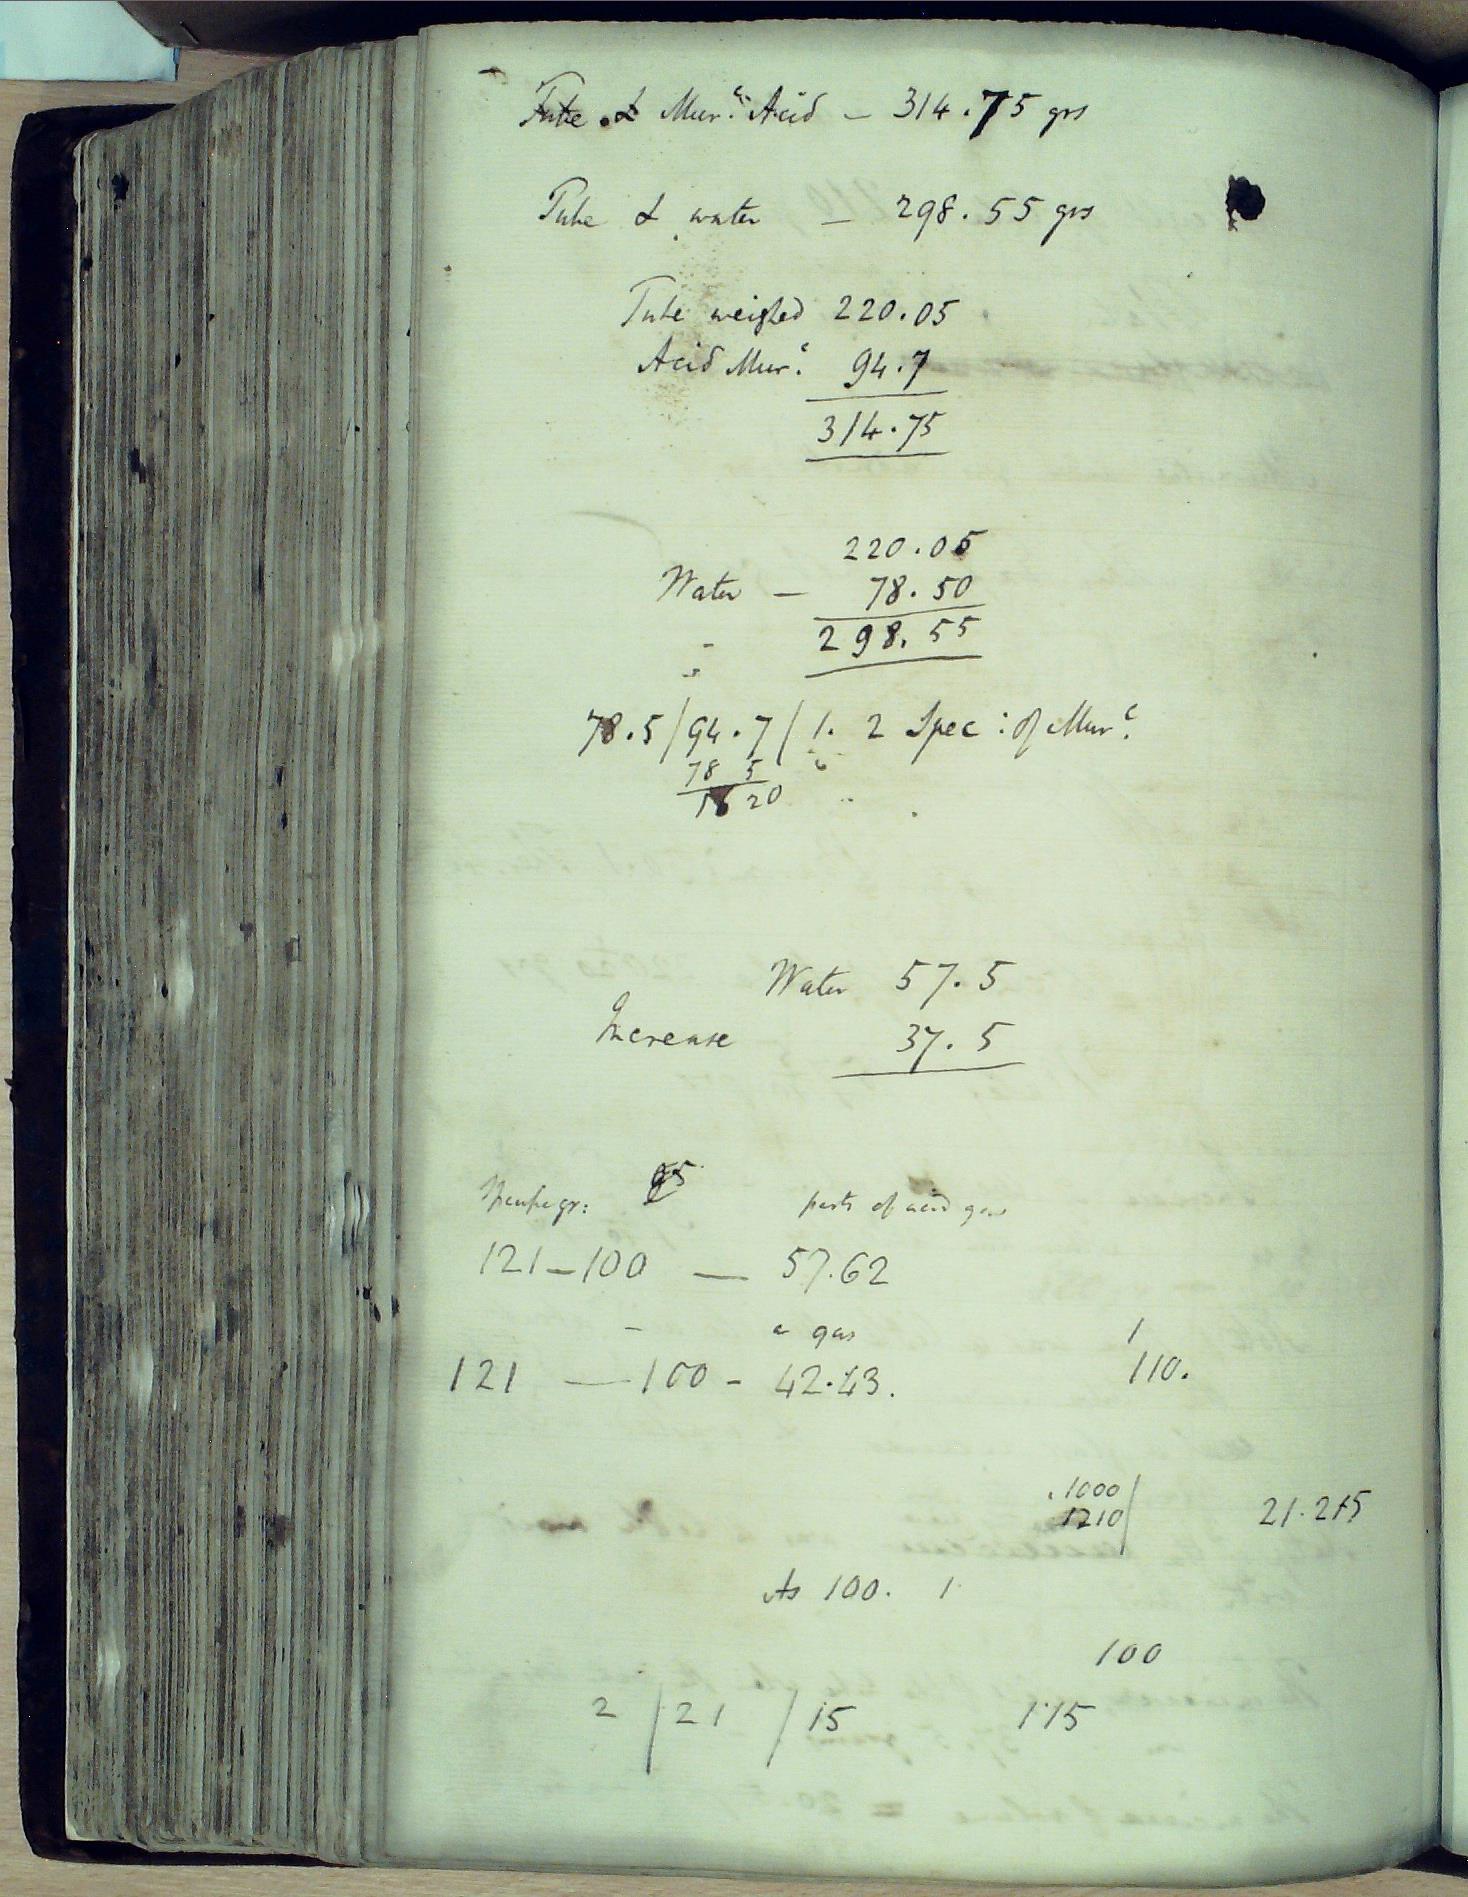 Tube & Mur:c Acid — 314.75 grs
Tube & water — 298.55 grs
Tube weighed 220.05
Acid Mur:c 94.7
314.75
220.05
Water — 78.50
298.55
78.5/94.7/1.2 Spec: of Mur:c
78 5
16 20
Water 57.5
Increase 37.5
parts of acid gas
121—100 — 57.62
a gas
1
121 — 100 - 42.43.
110.
.1000
1210/
21.215
As 100. 1
100
2 /21 /15
1.15